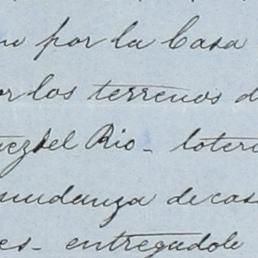 por la Casa
los terrenos d
ezdel Rio_ loter
mudanza de cas
es_ entregadole